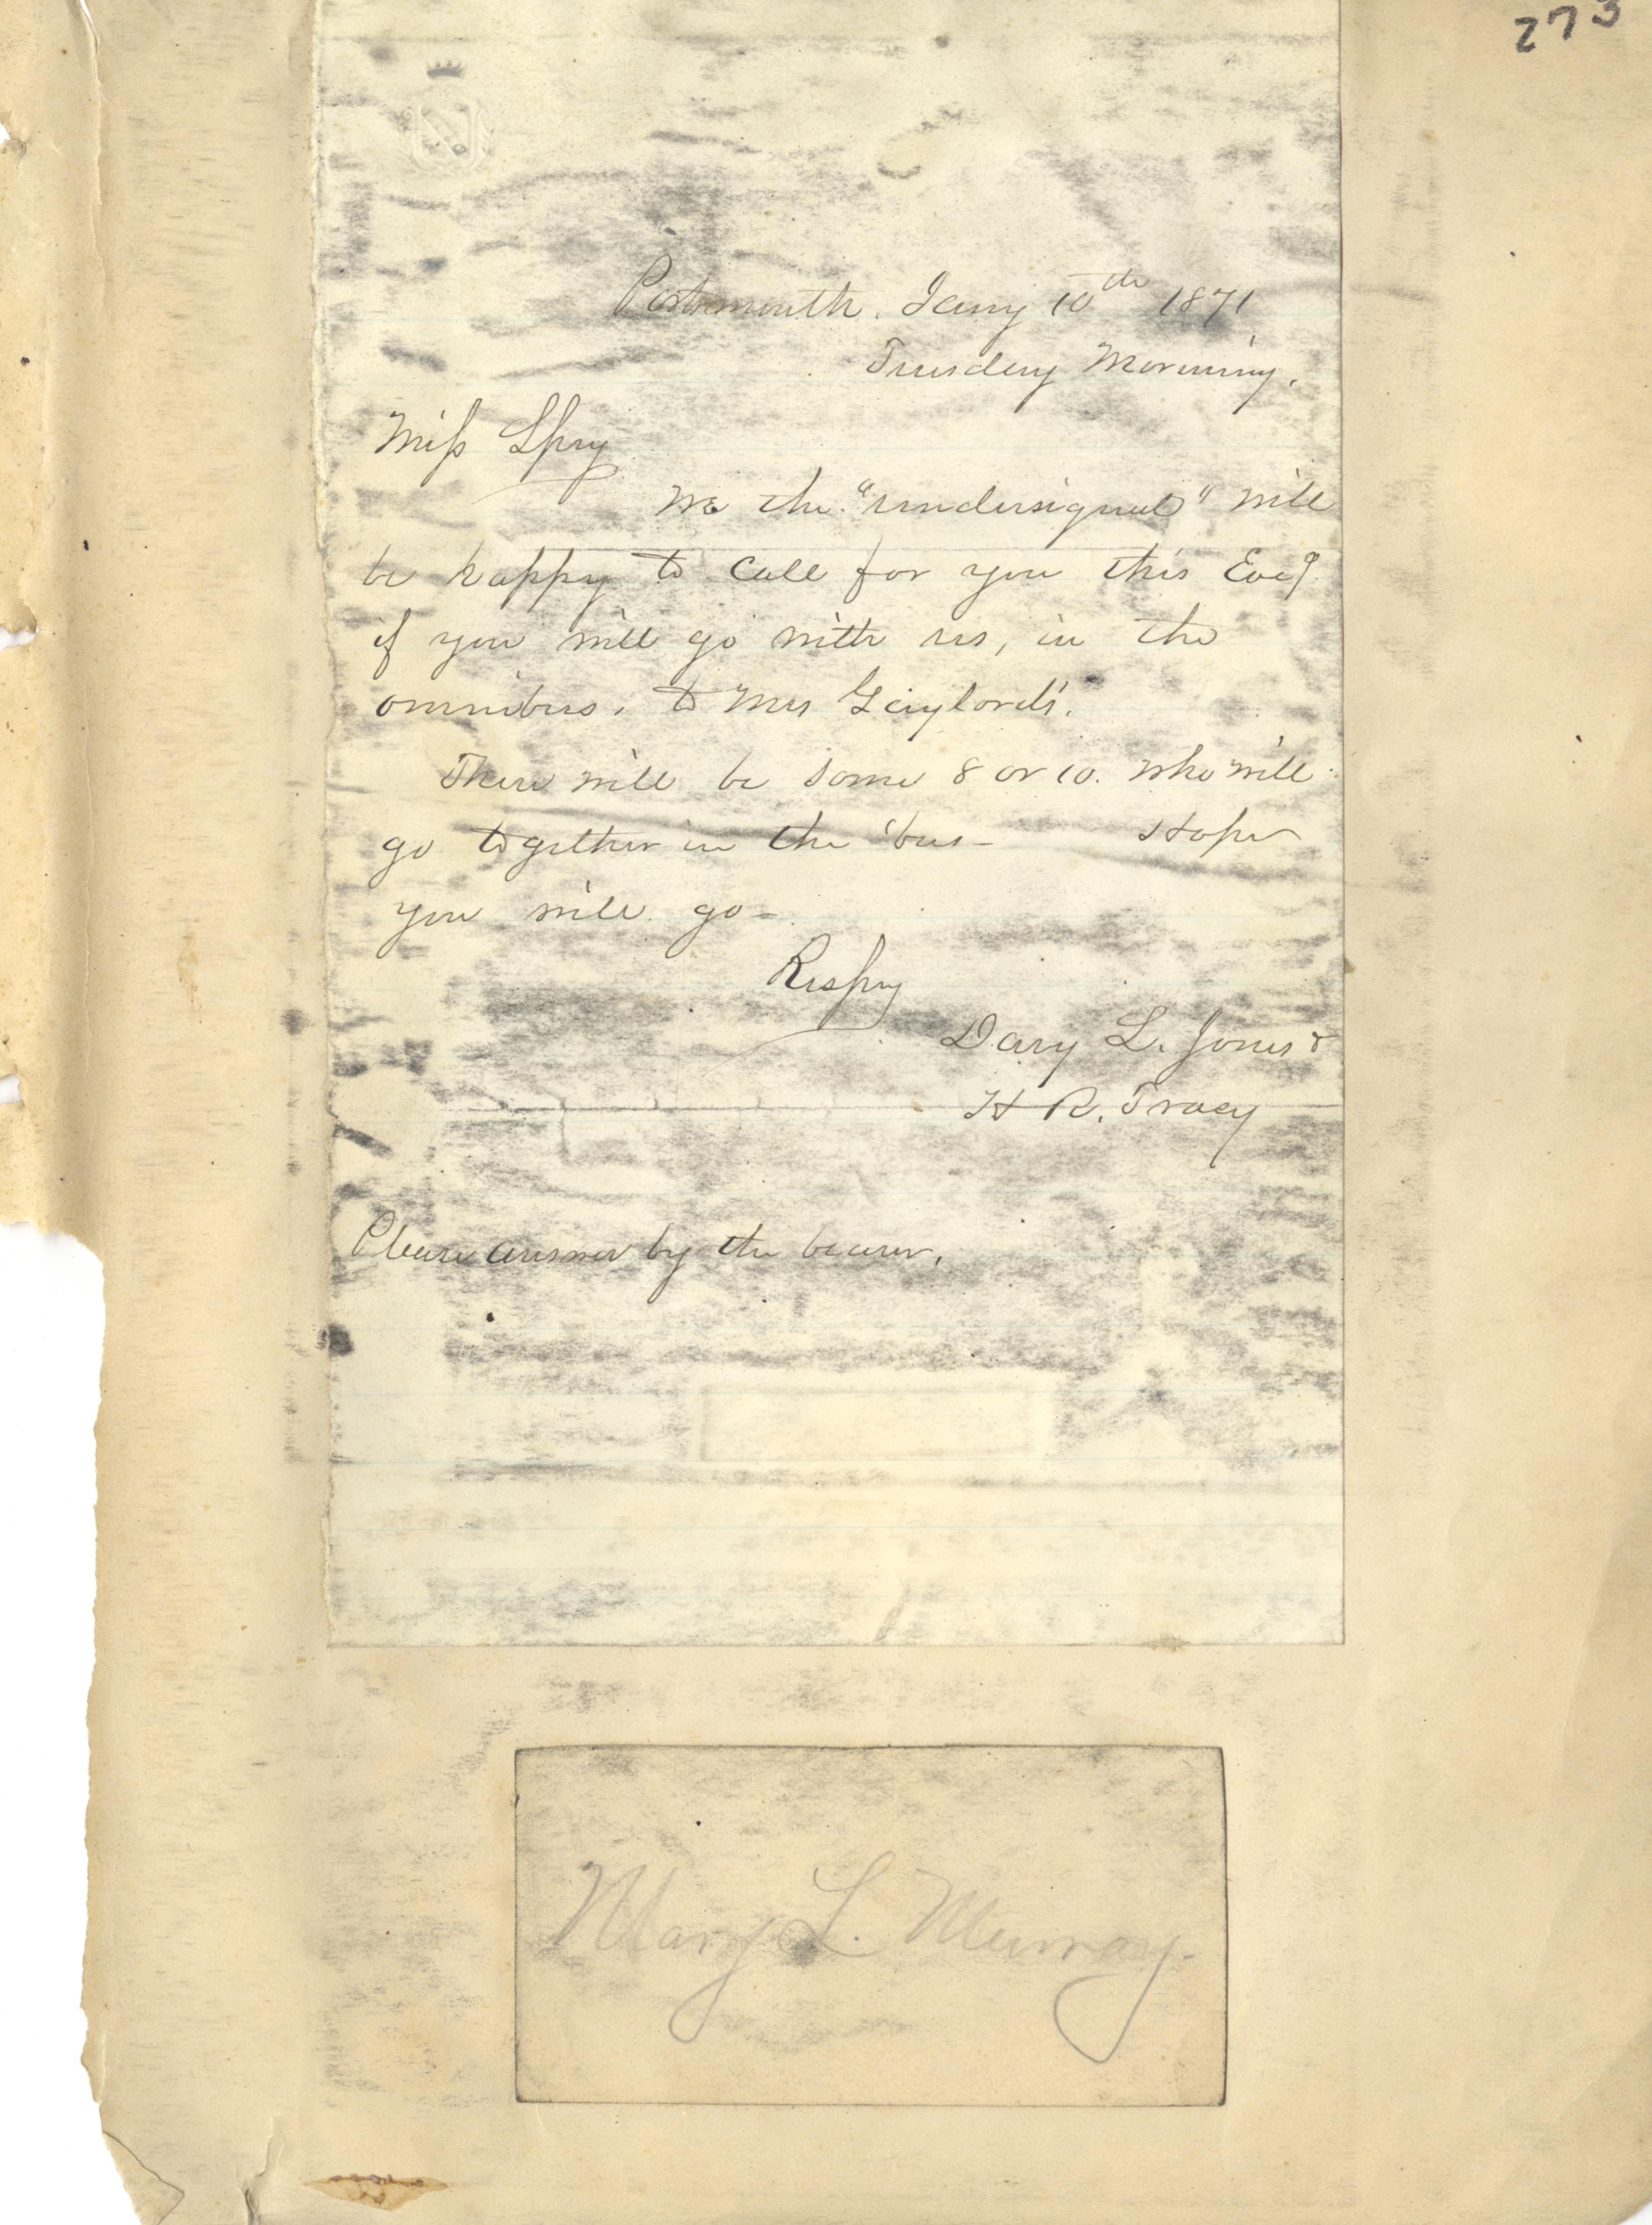 273
Portsmouth. Jany 10th 1871
Tuesday Morning.
Miss Spry
We the "undersigned" will
be happy to call for you this Eveg
if you will go with us, in the
omnibus, to Mrs Gaylord's.
There will be some 8 or 10. who will
go together in the 'bus - Hope
you will go -
Respy
L. Jones &
H R. Tracy
Please answer by the bearer.
Mary L. Murray.